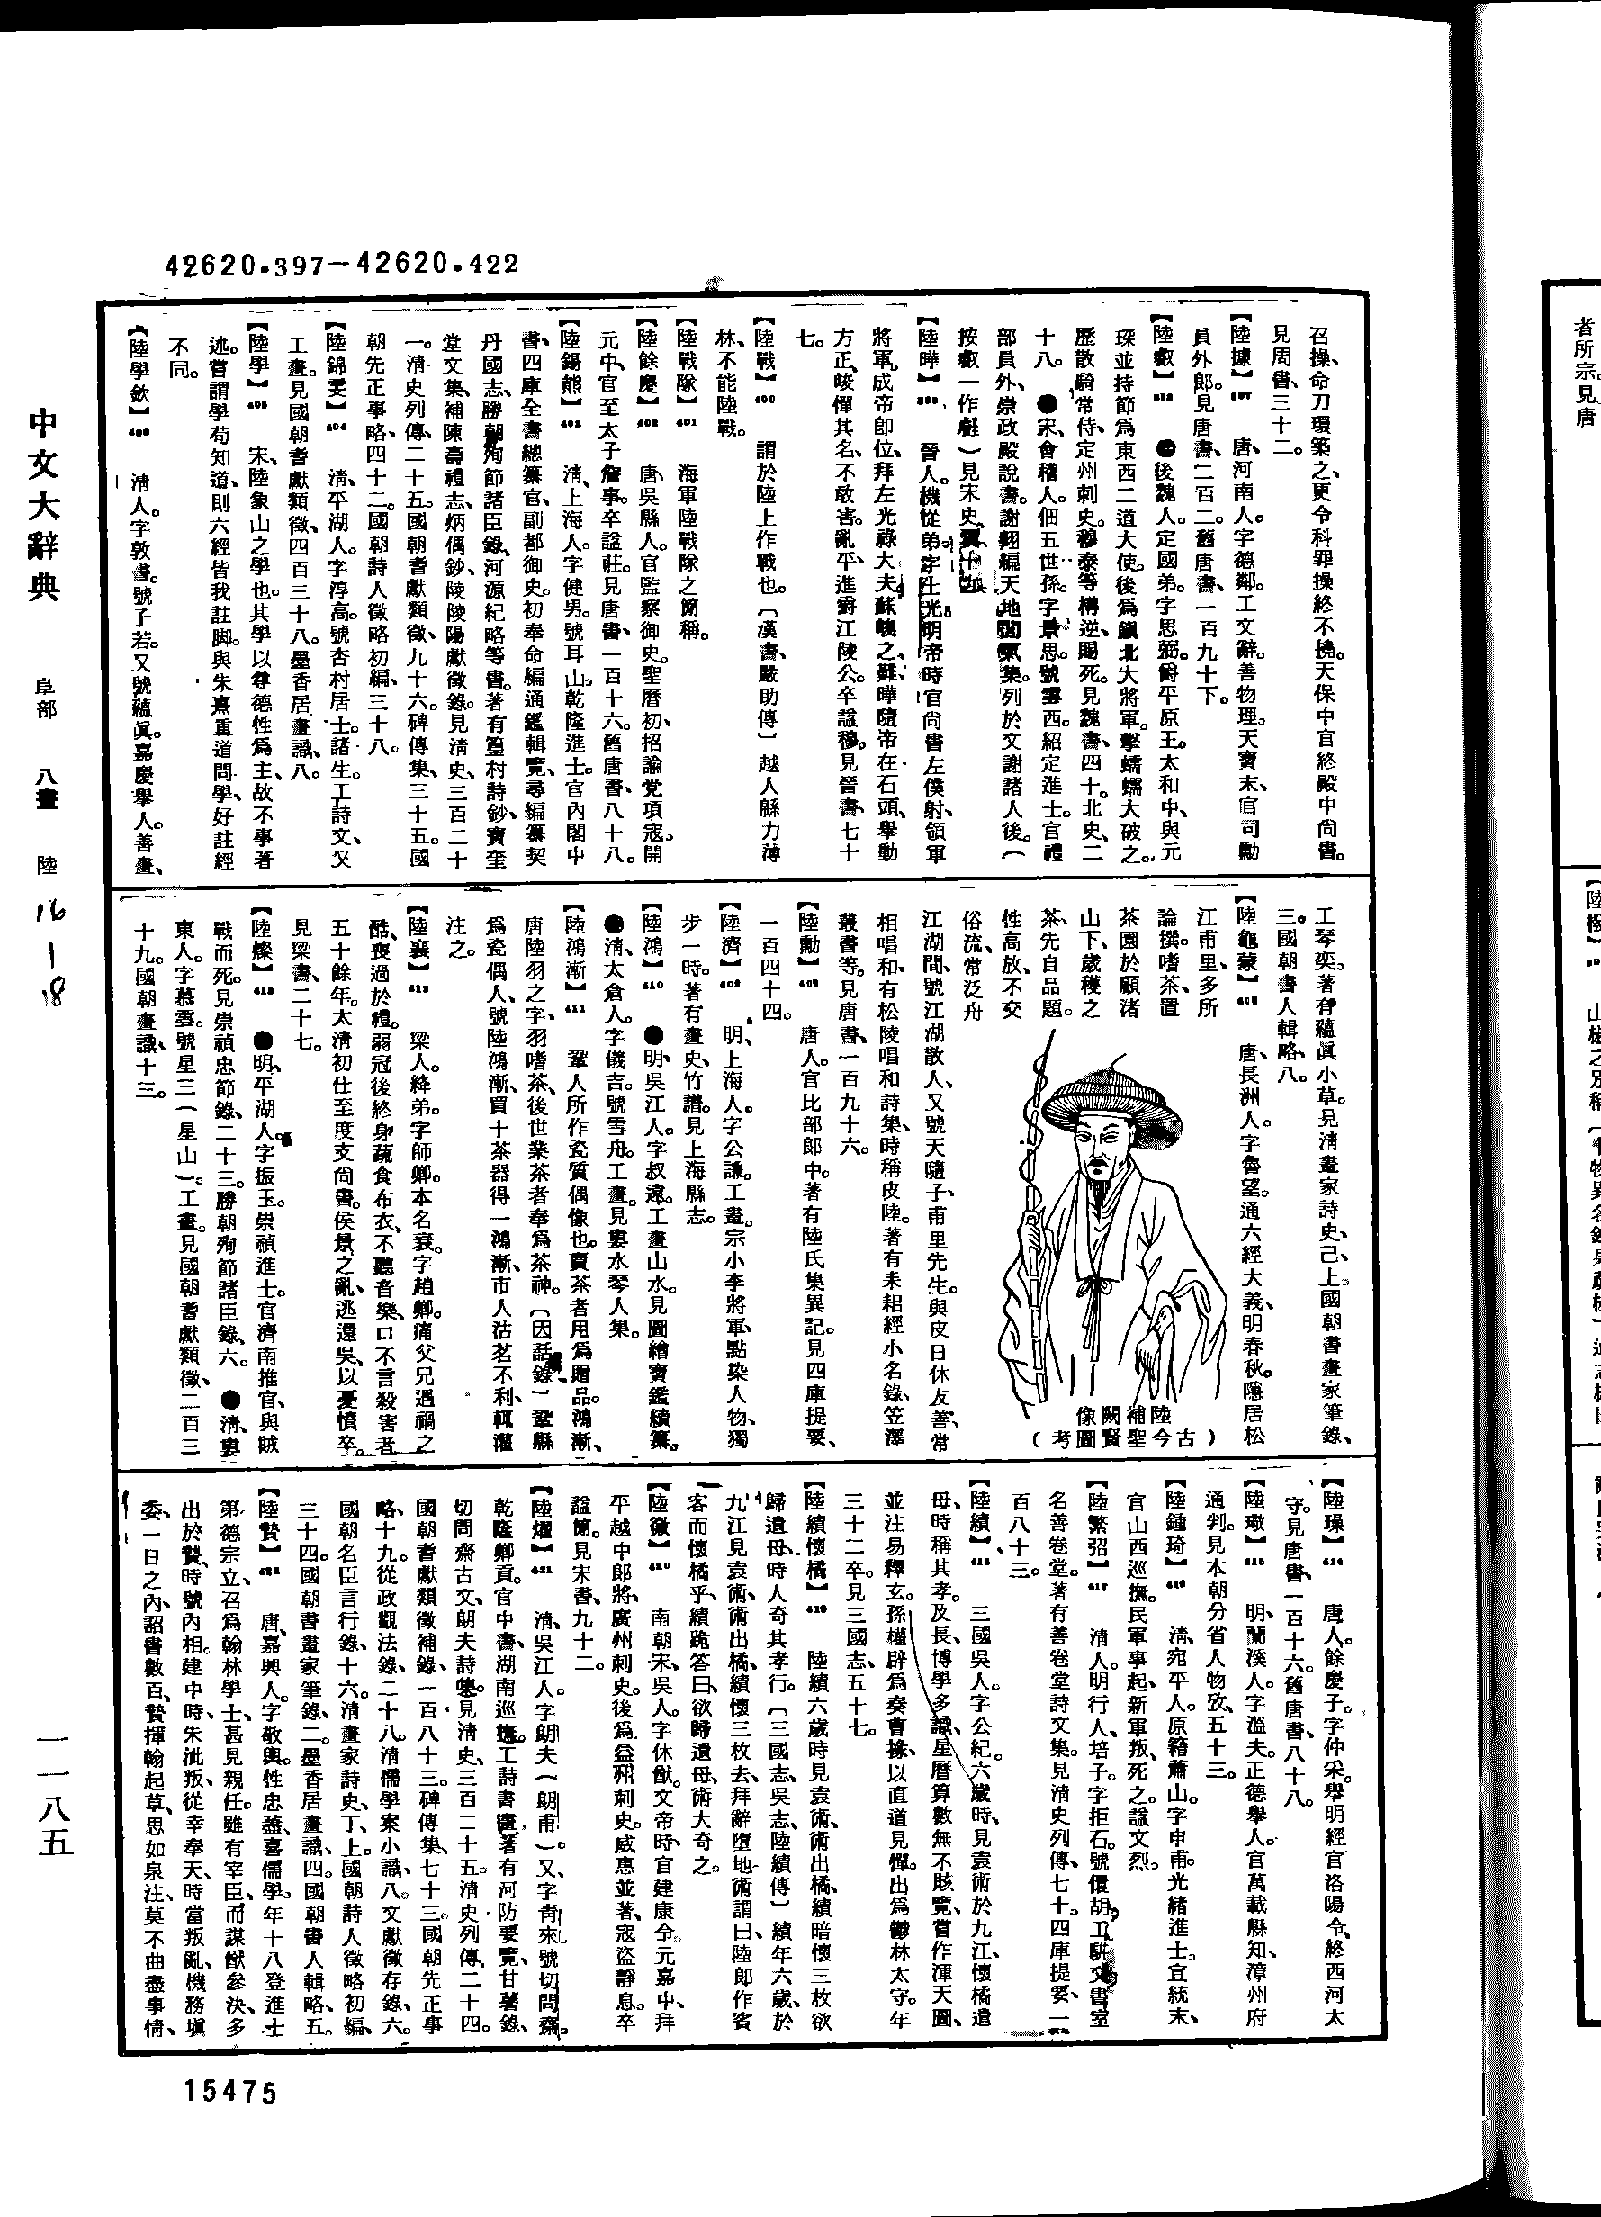 42620.397—42620.422
召操、命刀環築之、更令科罪操終不撓。天保中官終殿中尚書。
見周書、三十二。
【陸據】407 唐、河南人。字德鄰。工文辭善物理。天寶末、官司勳
員外郎。見唐書、二百二。舊唐書、一百九十下。
【陸叡】 ●後魏人。定國弟。字思弼。爵平原王。太和中、與元
琛並持節爲東西二道大使。後爲鎭北大將軍。擊蠕蠕大破之。
歷散騎常侍、定州刺史。穆泰等構逆、賜死。見魏書、四十。北史、二
十八。 ●宋、會稽人。佃五世孫。字景思。號雲西。紹定進士。官禮
部員外、崇政殿說書。謝翱編天地閒氣集。列於文謝諸人後。(
按叡一作
【陸曄】 晉人。機從弟。字士光。明帝時官尚書左僕射、領軍
將軍。成帝卽位、拜左光祿大夫。蘇峻之難、曄隨帝在石頭、舉動
方正、峻憚其名、不敢害。亂平、進爵江陵公。卒諡穆。見晉書、七十
七。
【陸戰】400 謂於陸上作戰也。〔漢書、嚴助傳〕越人緜力薄
林、不能陸戰。
【陸戰隊】401 海軍陸戰隊之簡稱。
【陸餘慶】402 唐、吳縣人。官監察御史。聖曆初、招諭党項寇。開
元中、官至太子詹事。卒諡莊。見唐書、一百十六。舊唐書、八十八。
【陸錫熊】403 淸、上海人。字健男。號耳山。乾隆進士。官內閣中
書、四庫全書總纂官、副都御史。初奉命編通鑑輯覽、尋編纂契
丹國志、勝朝殉節諸臣錄、河源紀略等書。著有篁村詩鈔、寶奎
堂文集、補陳壽禮志、炳偶鈔、陵陽獻徵錄。見淸史、三百二十
一。淸史列傳、二十五。國朝耆獻類徵、九十六。碑傳集、三十五。國
朝先正事略、四十二。國朝詩人徵略初編、三十八。
【陸錦雯】404 淸、平湖人。字淳高。號杏村居士。諸生。工詩文、又
工畫。見國朝耆獻類徵、四百三十八。墨香居畫識、八。
【陸學】405 宋、陸象山之學也。其學以尊德性爲主、故不事著
述。嘗謂學苟知道、則六經皆我註脚。與朱熹重道問學、好註經
不同。
【陸學欽】406 淸人。字敦書。號子若。又號蘊眞。嘉慶舉人。善畫、
工琴奕。著有蘊眞小草。見淸畫家詩史、己上。國朝書畫家筆錄、
三。國朝書人輯略、八。
【陸龜蒙】 唐、長洲人。字魯望。通六經大義、明春秋。隱居松
江甫里、多所
論撰。嗜茶、置
茶園於顧渚
山下、歲穫之
茶、先自品題。
性高放、不交
俗流、常泛舟
江湖間、號江湖散人、又號天隨子、甫里先生。與皮日休友善、常
相唱和、有松陵唱和詩集、時稱皮陸。著有耒耜經、小名錄、笠澤
叢書等。見唐書、一百九十六。
陸補闕像
(古今聖賢圖考)
【陸勳】408 唐人。官比部郎中。著有陸氏集異記。見四庫提要、
一百四十四。
【陸濟】409 明、上海人。字公謙。工畫、宗小李將軍。點染人物、獨
步一時。著有畫史、竹譜。見上海縣志。
【陸鴻】410 ●明、吳江人。字叔遠。工畫山水。見圖繪寶鑑續纂。
●淸、太倉人。字儀吉。號雪舟。工畫。見婁水琴人集。
【陸鴻漸】411 鞏人所作瓷質偶像也。賣茶者用爲贈品。鴻漸、
唐陸羽之字、羽嗜茶、後世業茶者奉爲茶神。〔因話錄〕鞏縣
爲瓷偶人、號陸鴻漸、買十茶器得一鴻漸、市人沽茗不利、輒灌
注之。
【陸襄】412 梁人。絳弟。字師卿。本名衰、字趙卿。痛父兄遇禍之
酷、喪過於禮。弱冠後終身蔬食布衣、不聽音樂、口不言殺害者
五十餘年。太淸初仕至度支尚書。侯景之亂、逃還吳、以憂憤卒。
見梁書、二十七。
【陸燦】413 ●明、平湖人。字振玉。崇禎進士。官濟南推官、與賊
戰而死。見崇禎忠節錄、二十三。勝朝殉節諸臣錄、六。 ●淸、婁
東人。字慕雲。號星三(星山)。工畫。見國朝耆獻類徵、二百三
十九。國朝畫識、十三。
【陸璪】414 唐人。餘慶子。字仲采。舉明經、官洛陽令、終西河太
守。見唐書、一百十六。舊唐書、八十八。
【陸 】415 明、蘭溪人。字滥夫。正德舉人。官萬載縣知、漳州府
通判。見本朝分省人物攷、五十三。
【陸鍾琦】416 淸、宛平人。原籍蕭山。字申甫。光緒進士。宣統末、
官山西巡撫。民軍事起、新軍叛、死之。諡文烈。
【陸繁弨】417 淸人。明行人、培子。字拒石。號儇胡。工駢文。書室
名善卷堂。著有善卷堂詩文集。見淸史列傳、七十。四庫提要、一
百八十三。
【陸績】418 三國吳人。字公紀。六歲時、見袁術於九江、懷橘遺
母、時稱其孝。及長、博學多識、星曆算數無不賅覽、嘗作渾天圖、
並注易釋玄。孫權辟爲奏曹掾、以直道見憚。出爲鬱林太守。年
三十二卒。見三國志、五十七。
【陸績懷橘】419 陸績六歲時見袁術、術出橘、績暗懷三枚欲
歸遺母、時人奇其孝行。〔三國志、吳志、陸績傳〕績年六歲、於
九江見袁術、術出橘、績懷三枚、去、拜辭墮地、術謂曰、陸郎作賓
客而懷橘乎、績跪答曰、欲歸遺母、術大奇之。
【陸徽】420 南朝宋、吳人。字休猷。文帝時、官建康令。元嘉中、拜
平越中郎將、廣州刺史。後爲益州刺史。威惠並著、寇盜靜息。卒
諡簡。見宋書、九十二。
【陸燿】421 淸、吳江人。字朗夫(朗甫)。又字靑來、號切問齋。
乾隆鄉貢。官中書、湖南巡撫。工詩書畫。著有河防要覽、甘薯錄、
切問齋古文、朗夫詩 。見淸史、三百二十五。淸史列傳、二十四。
國朝耆獻類徵補錄、一百八十三。碑傳集、七十三。國朝先正事
略、十九。從政觀法錄、二十八。淸儒學案小識、八。文獻徵存錄、六。
國朝名臣言行錄、十六。淸畫家詩史、丁上。國朝詩人徵略初編、
三十四。國朝書畫家筆錄、二。墨香居畫識、四。國朝書人輯略、五。
【陸贄】422 唐、嘉興人。字敬輿。性忠藎、喜儒學。年十八登進士
第。德宗立、召爲翰林學士、甚見親任。雖有宰臣、而謀猷參決、多
出於贄、時號內相。建中時、朱泚叛、從幸奉天、時當叛亂、機務塡
委、一日之內、詔書數百、贄揮翰起草、思如泉注、莫不曲盡事情、
中文大辭典 阜部 八畫 陸 16—18 一一八五
15475
者所宗。見唐